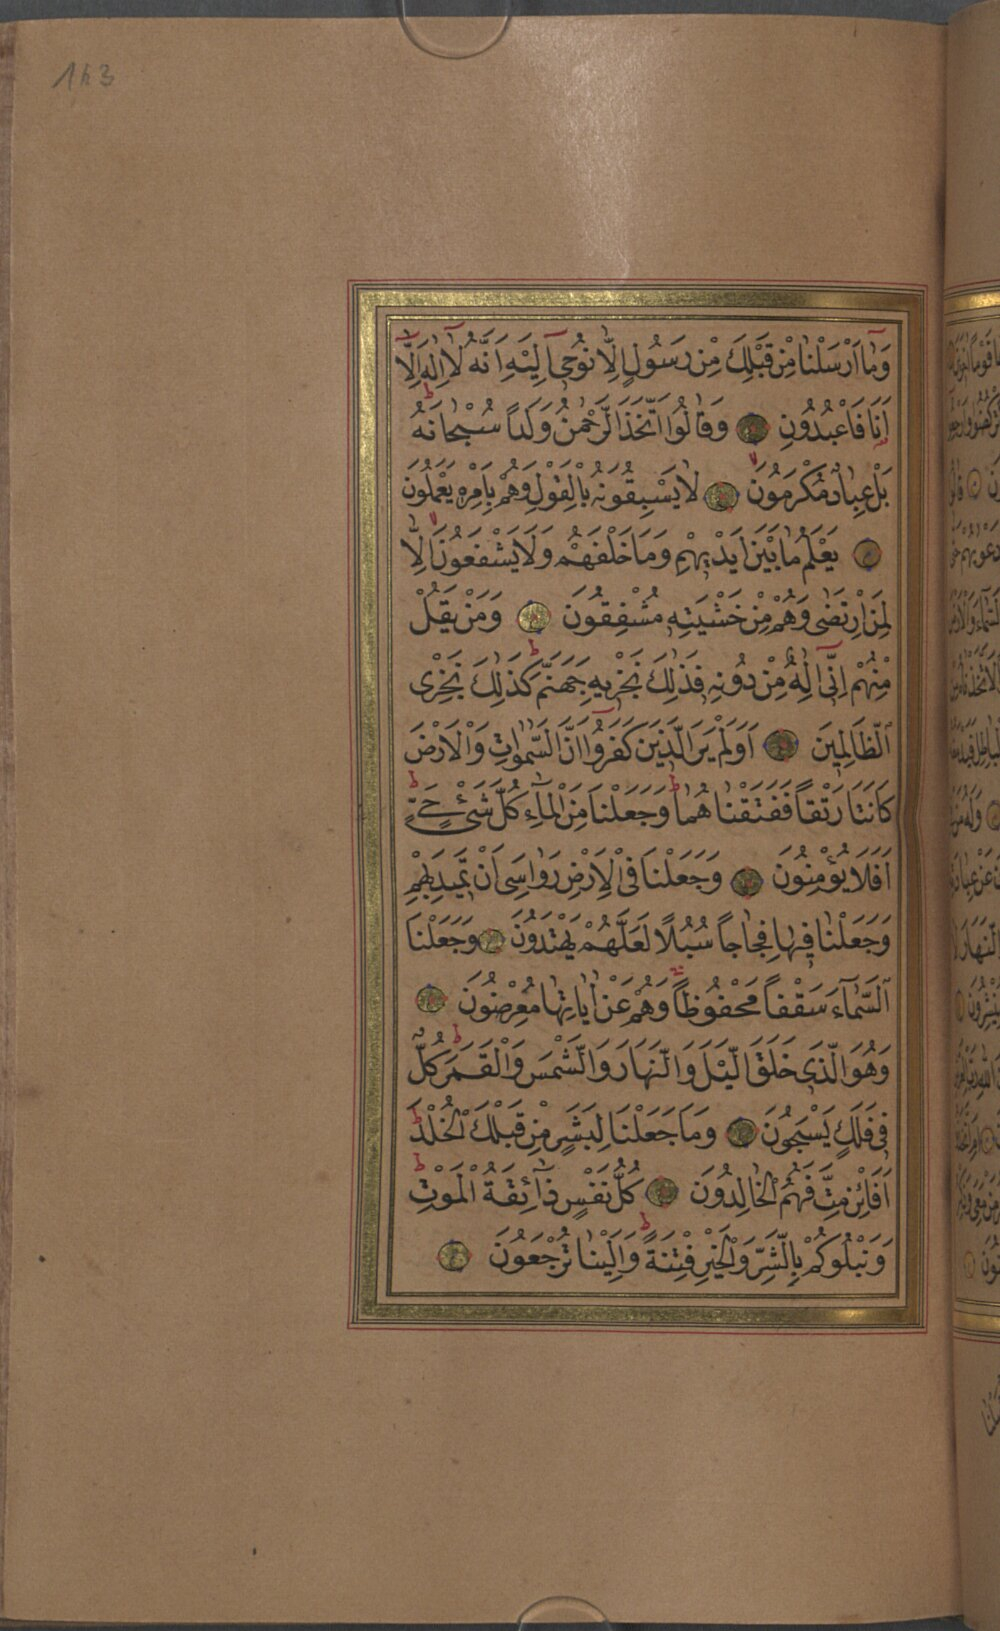 163
وَمَٓا اَرْسَلْنَا مِنْ قَبْلِكَ مِنْ رَسُولٍ اِلَّا نُوحٖٓى اِلَيْهِ اَنَّهُ لَٓا اِلٰهَ اِلَّٓا
اَنَا فَاعْبُدُونِ وَقَالُوا اتَّخَذَ الرَّحْمٰنُ وَلَداً سُبْحَانَهُ
بَلْ عِبَادٌ مُكْرَمُونَ لَا يَسْبِقُونَهُ بِالْقَوْلِ وَهُمْ بِاَمْرِهِ يَعْمَلُونَ
يَعْلَمُ مَا بَيْنَ اَيْدِيهِمْ وَمَا خَلْفَهُمْ وَلَا يَشْفَعُونَ اِلَّا
لِمَنِ ارْتَضٰى وَهُمْ مِنْ خَشْيَتِهِ مُشْفِقُونَ وَمَنْ يَقُلْ
مِنْهُمْ اِنِّٓى اِلٰهٌ مِنْ دُونِهِ فَذٰلِكَ نَجْزِيهِ جَهَنَّمَ كَذٰلِكَ نَجْزِى
الظَّالِمِينَ اَوَلَمْ يَرَ الَّذِينَ كَفَرُٓوا اَنَّ السَّمٰوَاتِ وَالْاَرْضَ
كَانَتَا رَتْقاً فَفَتَقْنَاهُمَا وَجَعَلْنَا مِنَ الْمَٓاءِ كُلَّ شَىْءٍ حَىٍّ
اَفَلَا يُؤْمِنُونَ وَجَعَلْنَا فِى الْاَرْضِ رَوَاسِىَ اَنْ تَمِيدَ بِهِمْ
وَجَعَلْنَا فِيهَا فِجَاجاً سُبُلًا لَعَلَّهُمْ يَهْتَدُونَ وَجَعَلْنَا
السَّمَٓاءَ سَقْفاً مَحْفُوظاً وَهُمْ عَنْ اٰيَاتِهَا مُعْرِضُونَ
وَهُوَ الَّذِى خَلَقَ الَّيْلَ وَالنَّهَارَ وَالشَّمْسَ وَالْقَمَرَ كُلٌّ
فِى فَلَكٍ يَسْبَحُونَ وَمَا جَعَلْنَا لِبَشَرٍ مِنْ قَبْلِكَ الْخُلْدَ
اَفَائِنْ مِتَّ فَهُمُ الْخَالِدُونَ كُلُّ نَفْسٍ ذَٓائِقَةُ الْمَوْتِ
وَنَبْلُوكُمْ بِالشَّرِّ وَالْخَيْرِ فِتْنَةً وَاِلَيْنَا تُرْجَعُونَ